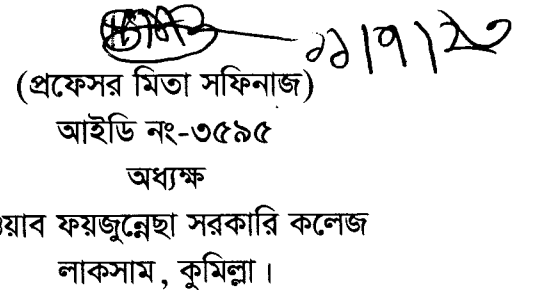 ১১/৭/২৩
(প্রফেসর মিতা সফিনাজ)
আইডি নং-৩৫৯৫
অধ্যক্ষ
ওয়াব ফয়জুন্নেছা সরকারি কলেজ
লাকসাম, কুমিল্লা।